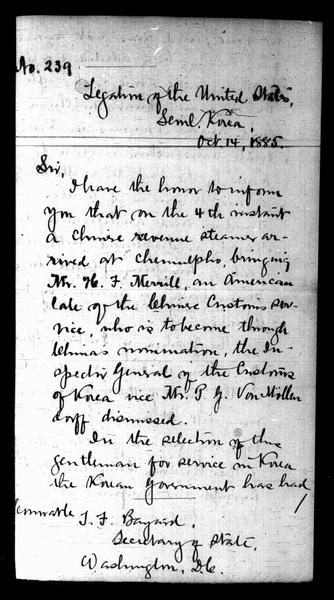 No. 239
Legation of the United States,
Seoul, Korea,
Oct 14, 1885.
Sir,
I have the honor to inform
you that on the 4th instant
a Chinese revenue steamer ar-
rived at Chemulpho, bringing
Mr. H. F. Merrill, an American
late of the Chinese Customs ser-
vice, who is to become through
Chinas nomination, the In-
spector General of the Customs
of Korea vice Mr. P. G. Von Möllen
dorff dismissed.
In the selection of this
gentleman for service in Korea
the Korean Government has had
Honorable T. F. Bayard,
Secretary of State,
Washington, D.C.